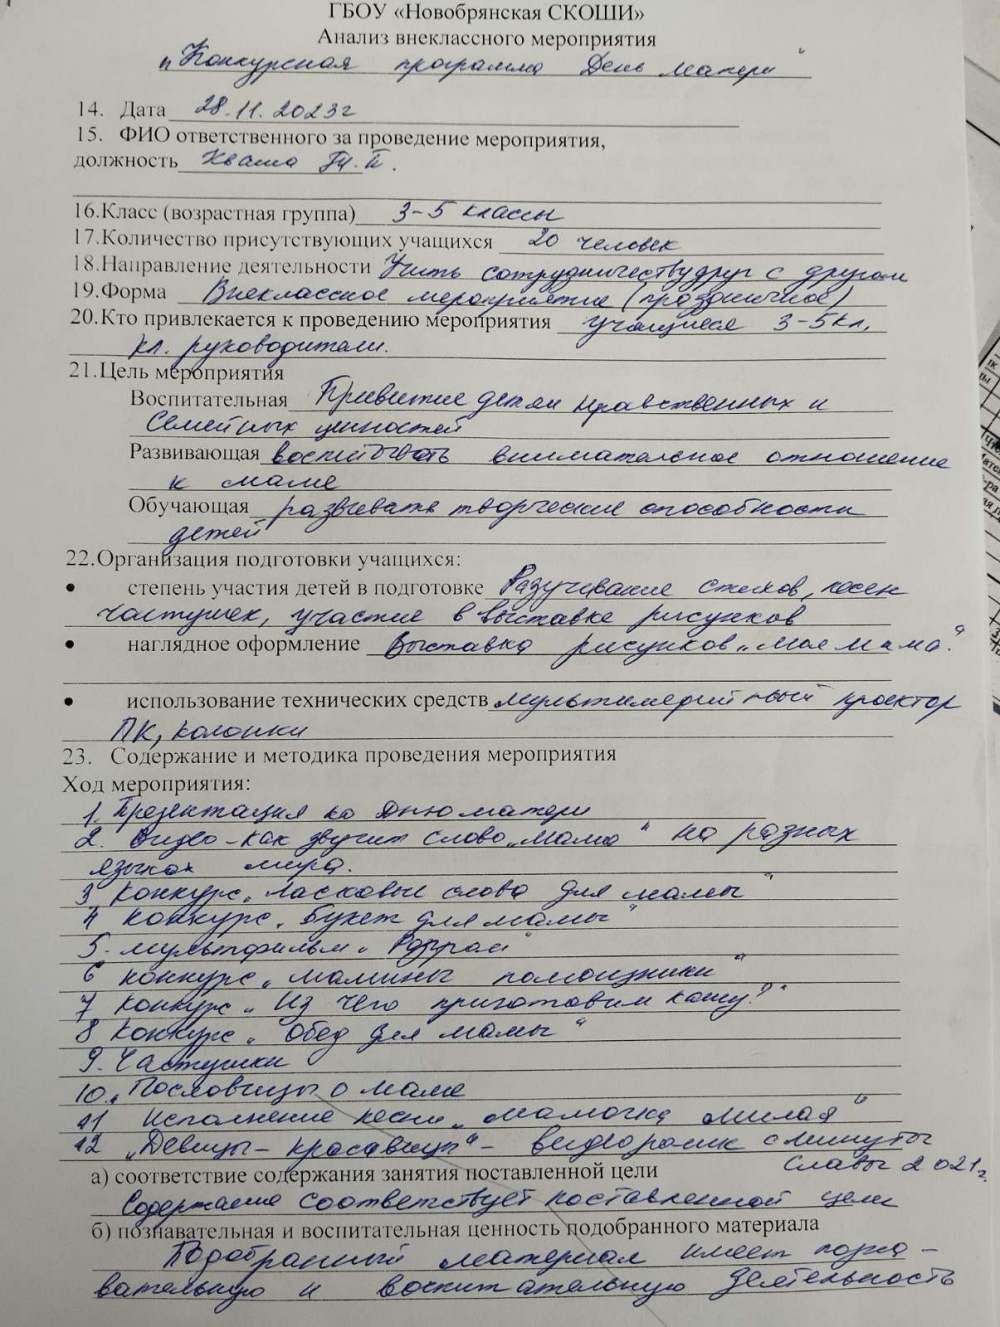 ГБОУ «Новобрянская СКОШИ»
Анализ внеклассного мероприятия
„Конкурсная программа День матери"
14. Дата 28.11.2023г
15. ФИО ответственного за проведение мероприятия,
должность Кваша
16.Класс (возрастная группа) 3-5 классы
17.Количество присутствующих учащихся 20 человек
18.Направление деятельности Учить сотрудничеству друг с другом
19.Форма Внеклассное мероприятие (праздничное)
20.Кто привлекается к проведению мероприятия учащиеся 3-5кл,
кл. руководители.
21.Цель мероприятия
Воспитательная Привитие детям нравственных и
семейных ценностей
Развивающая воспитывать внимательное отношение
к маме
Обучающая развивать творческие способности
детей
22.Организация подготовки учащихся:
• степень участия детей в подготовке Разучивание стихов, песен
частушек, участие в выставке рисунков
• наглядное оформление Выставка рисунков „Моя мама"
• использование технических средств мультимедийный проектор
ПК, колонки
23. Содержание и методика проведения мероприятия
Ход мероприятия:
1. Презентация ко Дню матери
2. Видео-как звучит слово „мама" на разных
языках мира.
3 Конкурс „Ласковые слова для мамы"
4 конкурс „Букет для мамы"
5. мультфильм
6 конкурс „мамины помощники"
7 конкурс „Из чего приготовим кашу?"
8 Конкурс „Обед для мамы"
9. Частушки
10. Пословицы о маме
11 Исполнение песни „мамочка милая"
12 „Девицы-красавицы"- видеоролик с минуты
Славы 2021г.
а) соответствие содержания занятия поставленной цели
Содержание соответствует поставленной цели
б) познавательная и воспитательная ценность подобранного материала
Подобранный материал имеет позна-
вательную и воспитательную деятельность